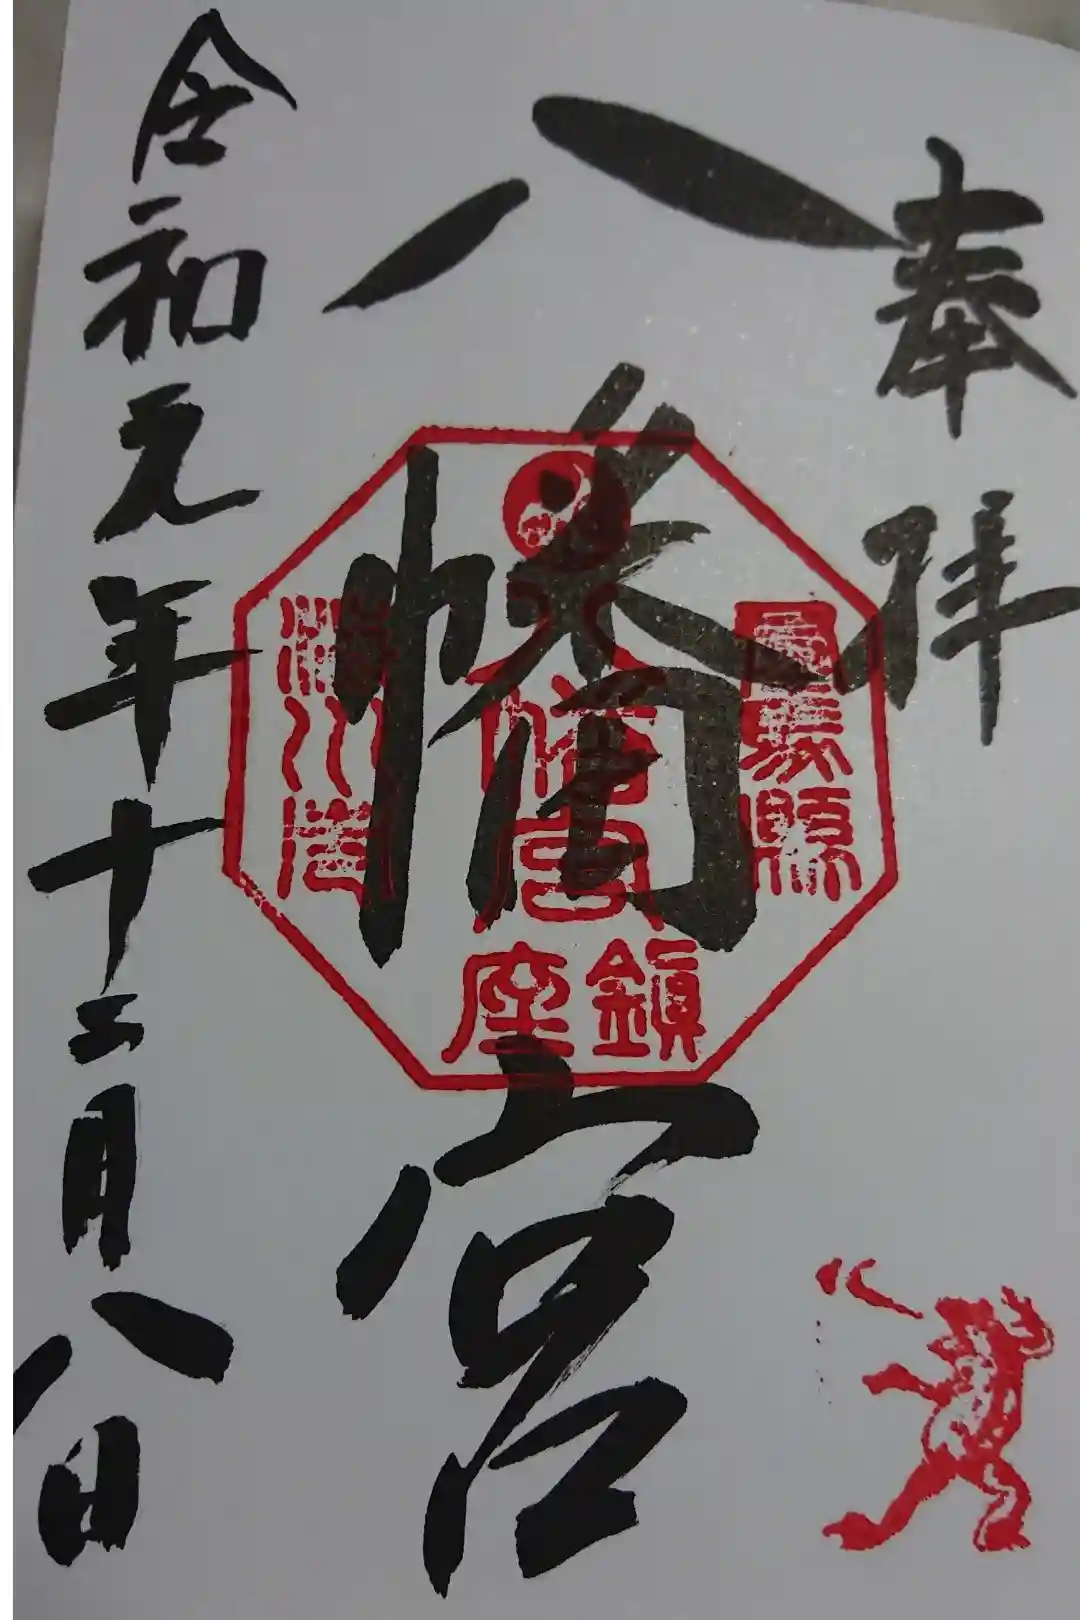 奉拝
八幡宮
群馬縣
八幡宮
鎮座
令和元年十二月八日